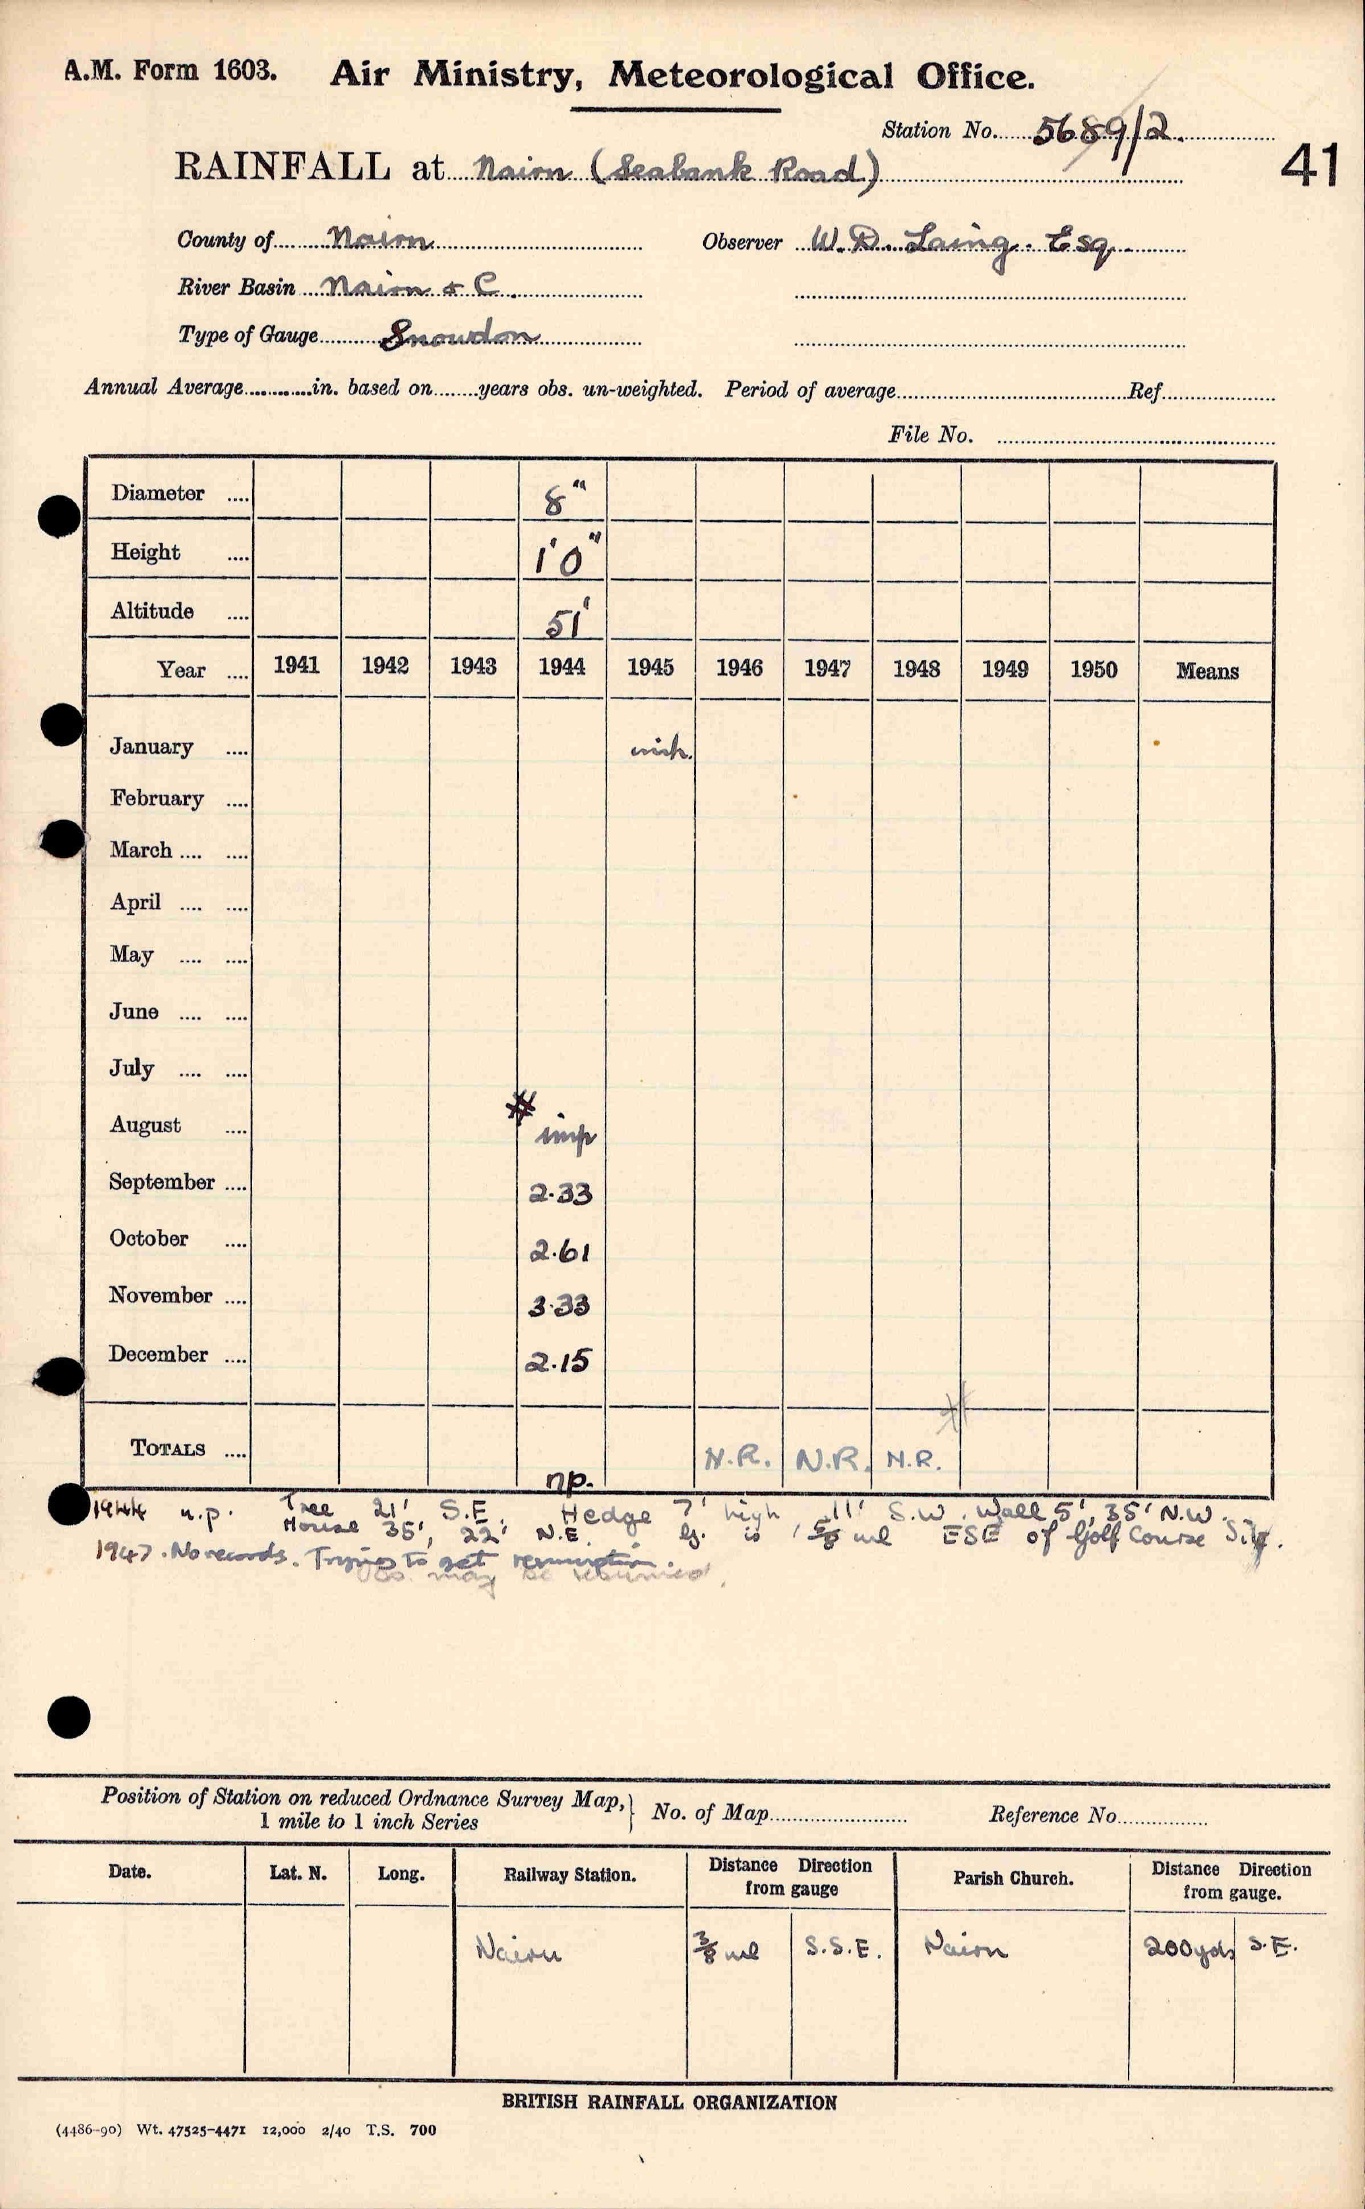 A.M. Form 1603. Air Ministry, Meteorological Office.
Station No. 5689/2.
41
RAINFALL at Nairn (Seabank Road)
County of Nairn Observer W. D. Laing. Esq.
River Basin Nairn & C.
Type of Gauge Snowdon
Annual Average in. based on years obs. un-weighted. Period of average Ref.
File No.
Diameter .... 8"
Height .... 1'0"
Altitude .... 51'
Year .... 1941 1942 1943 1944 1945 1946 1947 1948 1949 1950 Means
January ....
February ....
March .... ....
April .... ....
May .... ....
June .... ....
July .... ....
August .... imp
September .... 2.33
October .... 2.61
November .... 3.33
December .... 2.15
TOTALS .... np. N.R. N.R. N.R.
1944 n.p. Tree 21' S.E. Hedge 7' high 11' S.W. Wall 5', 35' N.W.
House 35', 22' N.E. is 5/8 ml ESE of Golf Course
1947. No records. Trying to get resumption.
may be resumed.
Position of Station on reduced Ordnance Survey Map, 1 mile to 1 inch Series } No. of Map Reference No.
Date. Lat. N. Long. Railway Station. Distance Direction from gauge Parish Church. Distance Direction from gauge.
Nairn 3/8 ml S.S.E. Nairn 200yds S.E.
BRITISH RAINFALL ORGANIZATION
(4486-90) Wt. 47525-4471 12,000 2/40 T.S. 700